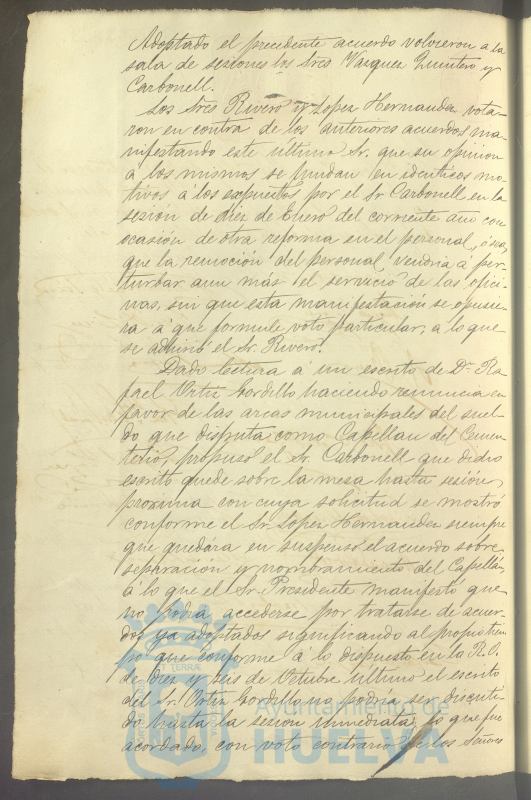 Adoptado el precedente acuerdo volvieron a la
sala de sesiones los Sres Vazquez Quintero y
Carbonell.
Los Sres Rivero y Lopez Hernandez vota-
ron en contra de los anteriores acuerdos ma-
nifestando este último Sr. que su opinion
á los mismos se fundan en identicos mo-
tivos á los expuestos por el Sr Carbonell en la
sesion de diez de Enero del corriente año con
ocasión de otra reforma en el personal, ó sea,
que la remoción del personal vendria á per-
turbar aun más el servicio de las ofici-
nas, sin que esta manifestación se opusie-
ra á que formule voto particular, a lo que
se adhirió el Sr. Rivero.
Dado lectura á un escrito de Dn. Ra-
fael Ortiz Gordillo haciendo renuncia en
favor de las arcas municipales del suel-
do que disfruta como Capellan del Cemen-
terio, propuso el Sr. Carbonell que dicho
escrito quede sobre la mesa hasta sesión
proxima con cuya solicitud se mostró
conforme el Sr Lopez Hernandez siempre
que quedára en suspenso el acuerdo sobre
separacion y nombramiento del Capellán
á lo que el Sr. Presidente manifestó que
no podia accederse por tratarse de acuer-
dos ya adoptados significando al propio tiem-
po que conforme á lo dispuesto en la R. O.
de diez y seis de Octubre último el escrito
del Sr. Ortiz Gordillo no podria ser discuti-
do hasta la sesion inmediata, lo que fue
acordado, con voto contrario de los Señores
TERRA
Ayuntamiento de
HUELVA